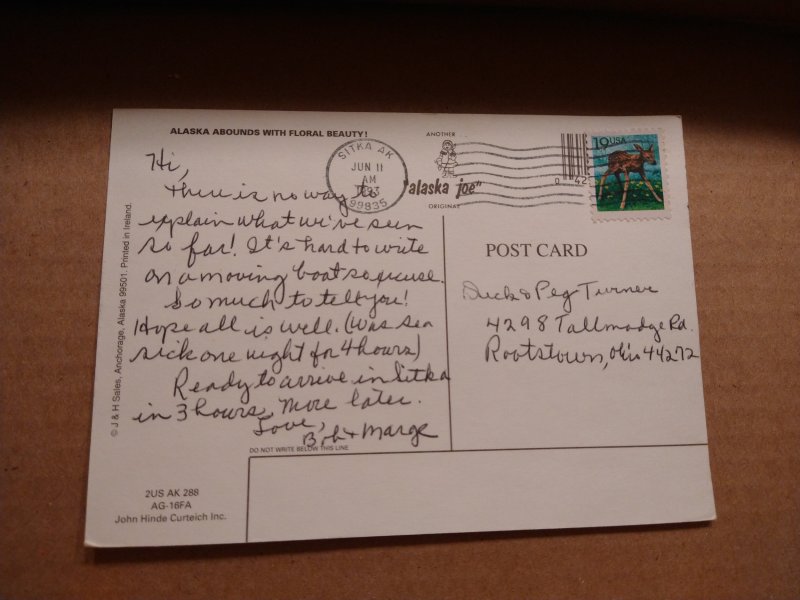 ALASKA ABOUNDS WITH FLORAL BEAUTY!
Hi,
There is no way to
explain what we've seen
so far! It's hard to write
on a moving boat so excuse.
So much to tell you!
Hope all is well. (Was sea
sick one night for 4 hours)
Ready to arrive in Sitka
in 3 hours, more later.
Love,
Bob + Marge
DO NOT WRITE BELOW THIS LINE
© J & H Sales, Anchorage, Alaska 99501. Printed in Ireland.
2US AK 288
AG-16FA
John Hinde Curteich Inc.
SITKA AK
JUN 11
AM
99835
ANOTHER
"alaska joe"
ORIGINAL
19USA
POST CARD
& Peg Turner
4298 Tallmadge Rd.
Rootstown, Ohio 44272